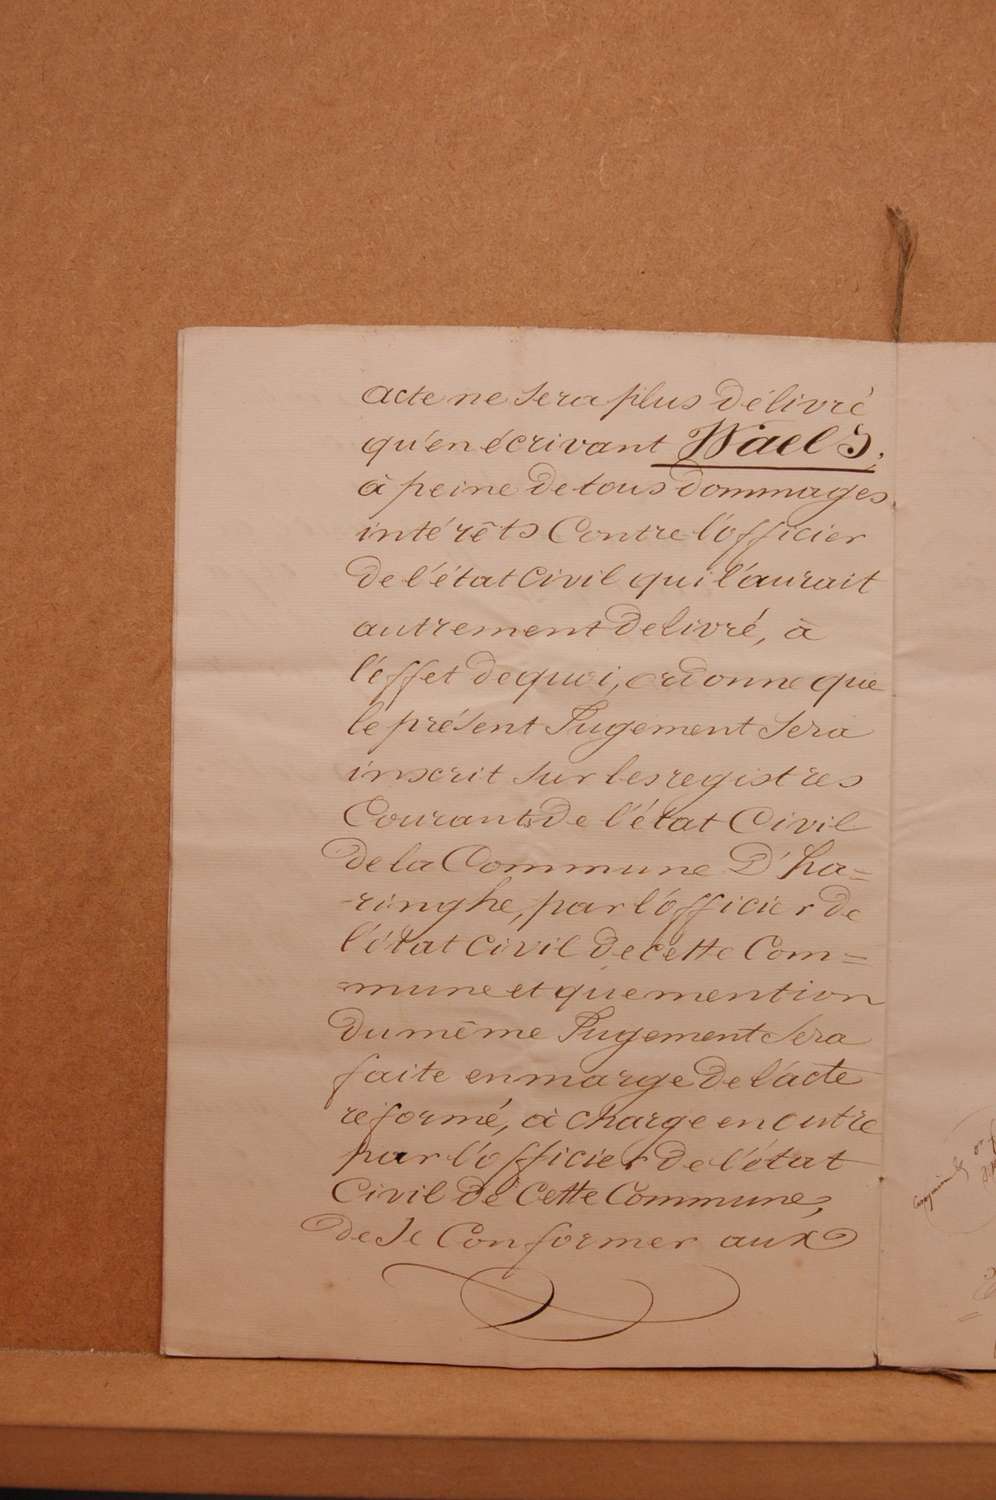 acte ne sera plus délivré
qu'en écrivant Waels,
à peine de tous dommages
intérêts Contre l'officier
de l'état Civil qui l'aurait
autrement delivré, à
l'effet de quoi, ordonne que
le présent Jugement Sera
inscrit sur les registres
Courants de l'état Civil
de la Commune D'ha=
-ringhe, par l'officier de
l'état Civil de cette Com=
=mune et que mention
du même Jugement Sera
faite en marge de l'acte
reformé, à charge en outre
par l'officier de l'état
Civil de Cette Commune,
de Se Conformer aux